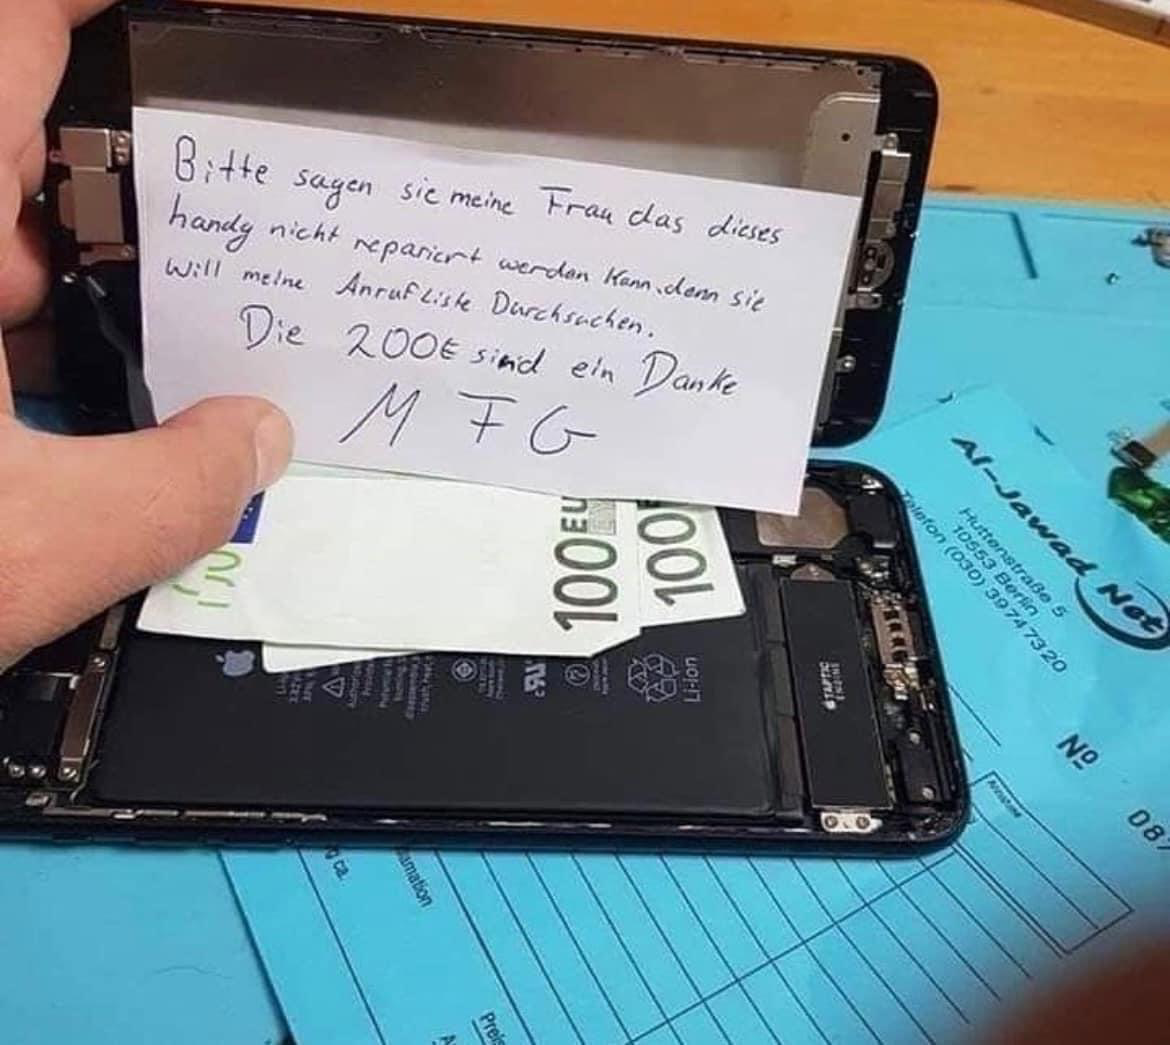 Bitte sagen sie meine Frau das dieses
handy nicht repariert werden kann. denn sie
will meine Anruf Liste Durchsuchen.
Die 200€ sind ein Danke
M F G
100 EU
100
Li-Ion
TAPTIC
ENGINE
Al-Jawad Net
Huttenstraße 5
10553 Berlin
Telefon (030) 39 74 73 20
Nº
087
g ca.
Preis